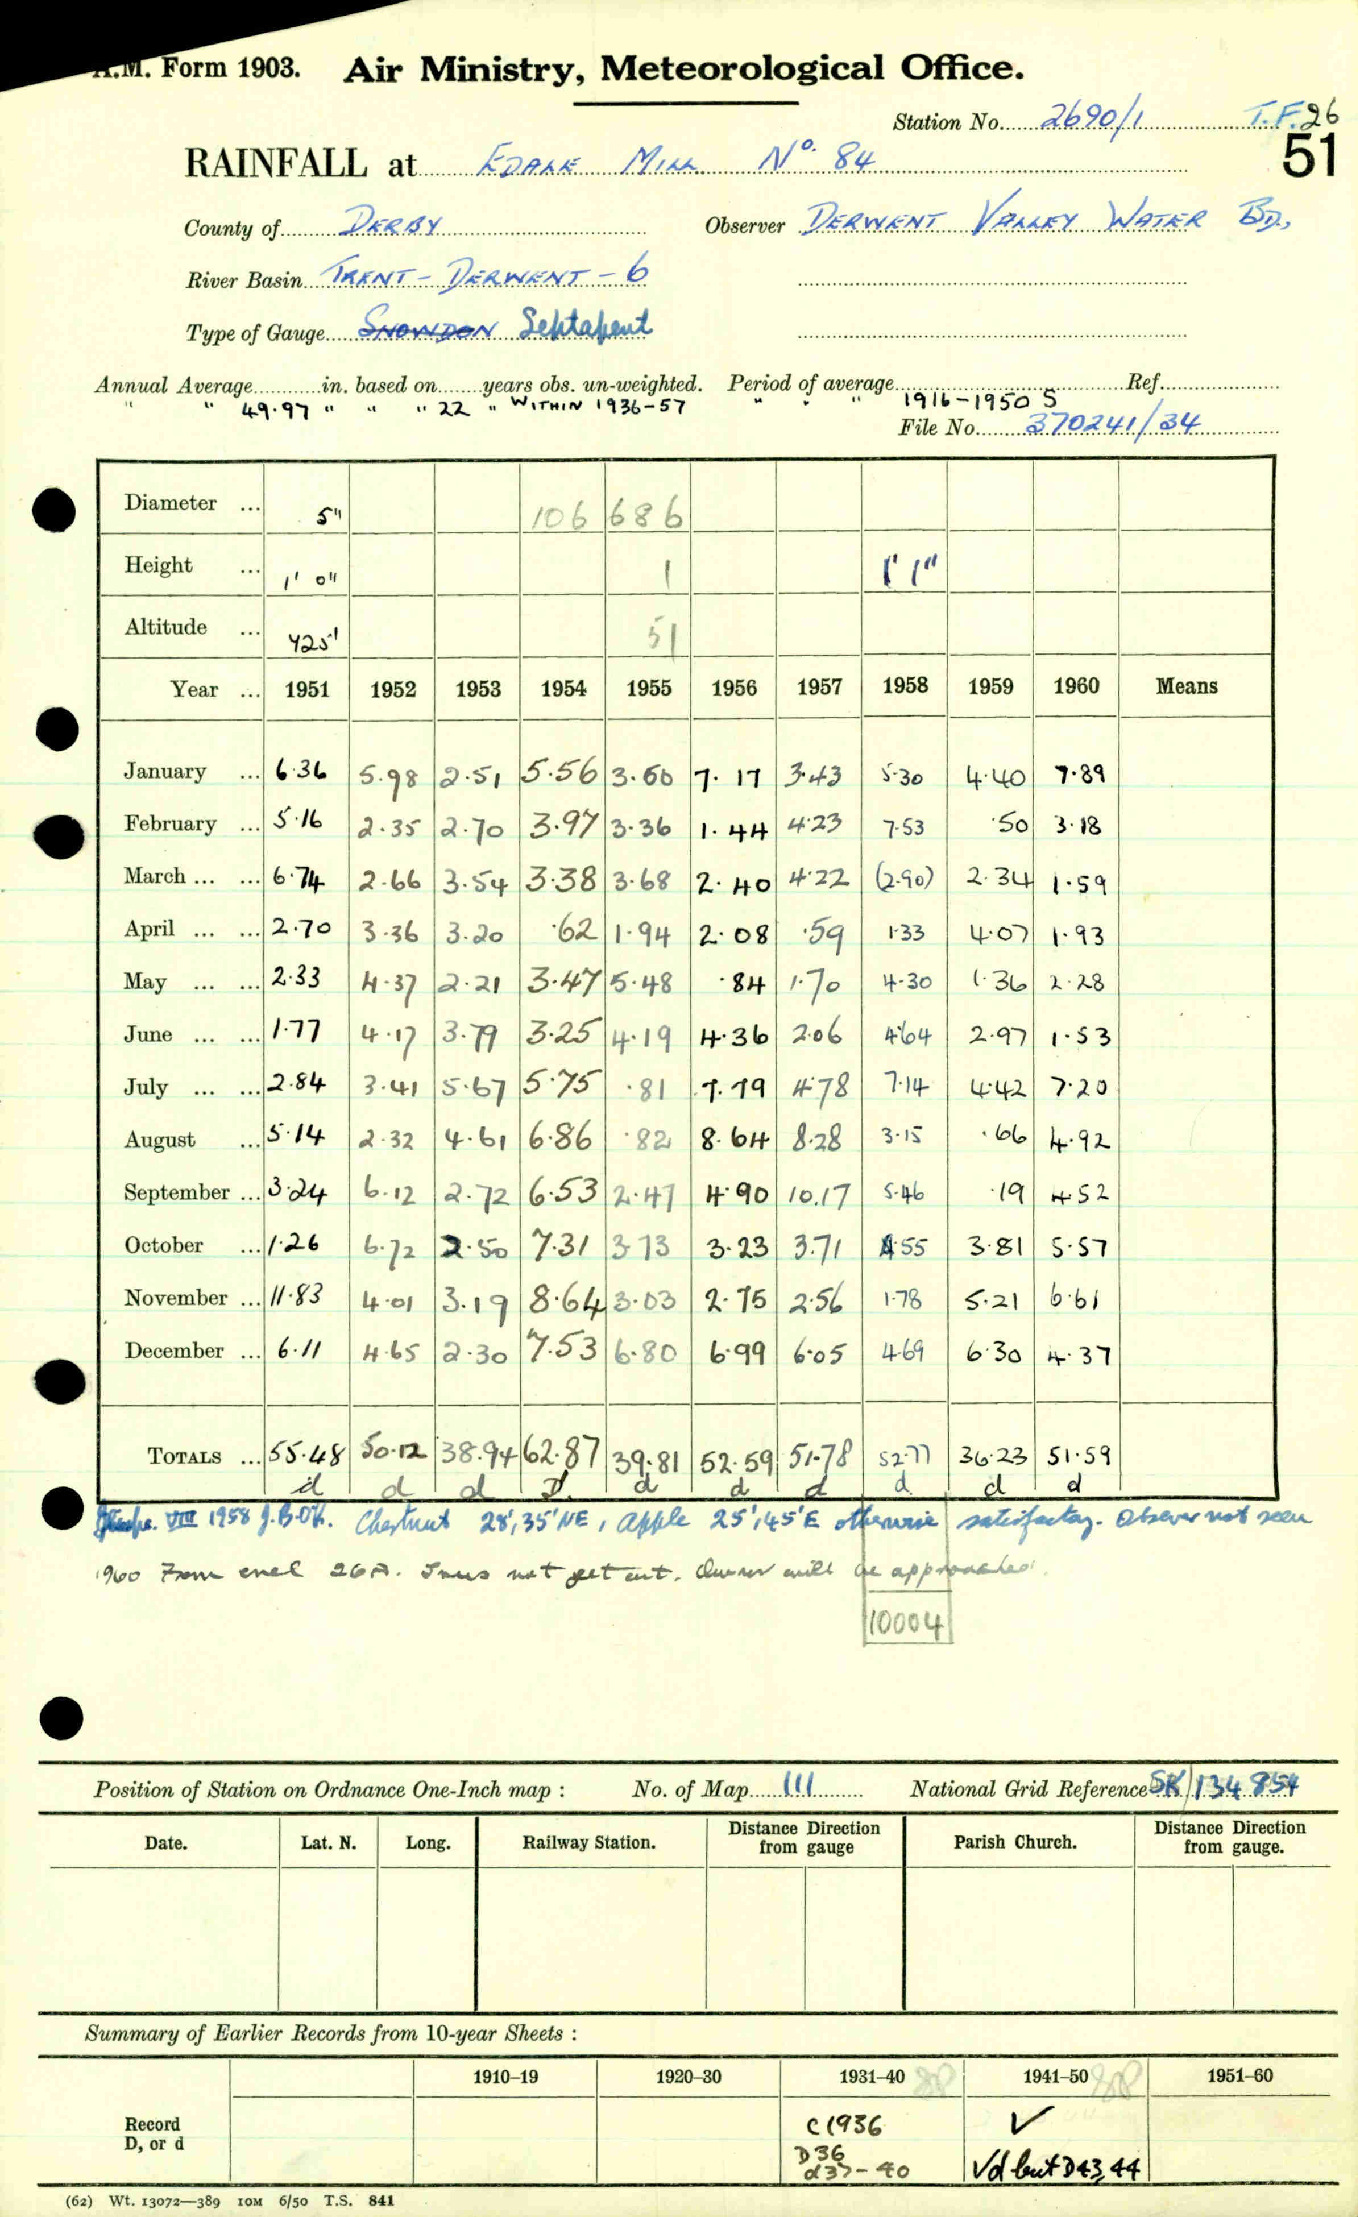 A.M. Form 1903. Air Ministry, Meteorological Office.
Station No. 2690/1 T.F. 26
51
RAINFALL at EDALE MILL No. 84
County of DERBY Observer DERWENT VALLEY WATER BD.,
River Basin TRENT - DERWENT - 6
Type of Gauge SNOWDON Septapent
Annual Average in. based on years obs. un-weighted. Period of average Ref.
" " 49.97 " " " 22 " WITHIN 1936-57 " " " 1916-1950 S
File No. 370241/34
Diameter ... 5" 106 686
Height ... 1' 0" 1 1' 1"
Altitude ... 425' 51
Year ... 1951 1952 1953 1954 1955 1956 1957 1958 1959 1960 Means
January ... 6.36 5.98 2.51 5.56 3.50 7.17 3.43 5.30 4.40 7.89
February ... 5.16 2.35 2.70 3.97 3.36 1.44 4.23 7.53 .50 3.18
March ... ... 6.74 2.66 3.54 3.38 3.68 2.40 4.22 (2.90) 2.34 1.59
April ... ... 2.70 3.36 3.20 .62 1.94 2.08 .59 1.33 4.07 1.93
May ... ... 2.33 4.37 2.21 3.47 5.48 .84 1.70 4.30 1.36 2.28
June ... ... 1.77 4.17 3.79 3.25 4.19 4.36 2.06 4.64 2.97 1.53
July ... ... 2.84 3.41 5.67 5.75 .81 7.79 4.78 7.14 4.42 7.20
August ... 5.14 2.32 4.61 6.86 .82 8.64 8.28 3.15 .66 4.92
September ... 3.24 6.12 2.72 6.53 2.47 4.90 10.17 5.46 .19 4.52
October ... 1.26 6.72 2.50 7.31 3.73 3.23 3.71 4.55 3.81 5.57
November ... 11.83 4.01 3.19 8.64 3.03 2.75 2.56 1.78 5.21 6.61
December ... 6.11 4.65 2.30 7.53 6.80 6.99 6.05 4.69 6.30 4.37
TOTALS ... 55.48 50.12 38.94 62.87 39.81 52.59 51.78 52.77 36.23 51.59
d d d D. d d d d d d
VIII 1958 J.B.OK. Chestnut 28', 35' NE, Apple 25', 45' E otherwise satisfactory. Observer not seen
1960 From encl 26A. Trees not yet cut. Owner will be approached.
10004
Position of Station on Ordnance One-Inch map : No. of Map 111 National Grid Reference SK/134 854
Date. Lat. N. Long. Railway Station. Distance from Direction gauge Parish Church. Distance from Direction gauge.
Summary of Earlier Records from 10-year Sheets :
1910–19 1920–30 1931–40 1941–50 1951–60
Record D, or d
C1936 ✓
D36
d37-40 Vd but D43,44
(62) Wt. 13072—389 10M 6/50 T.S. 841